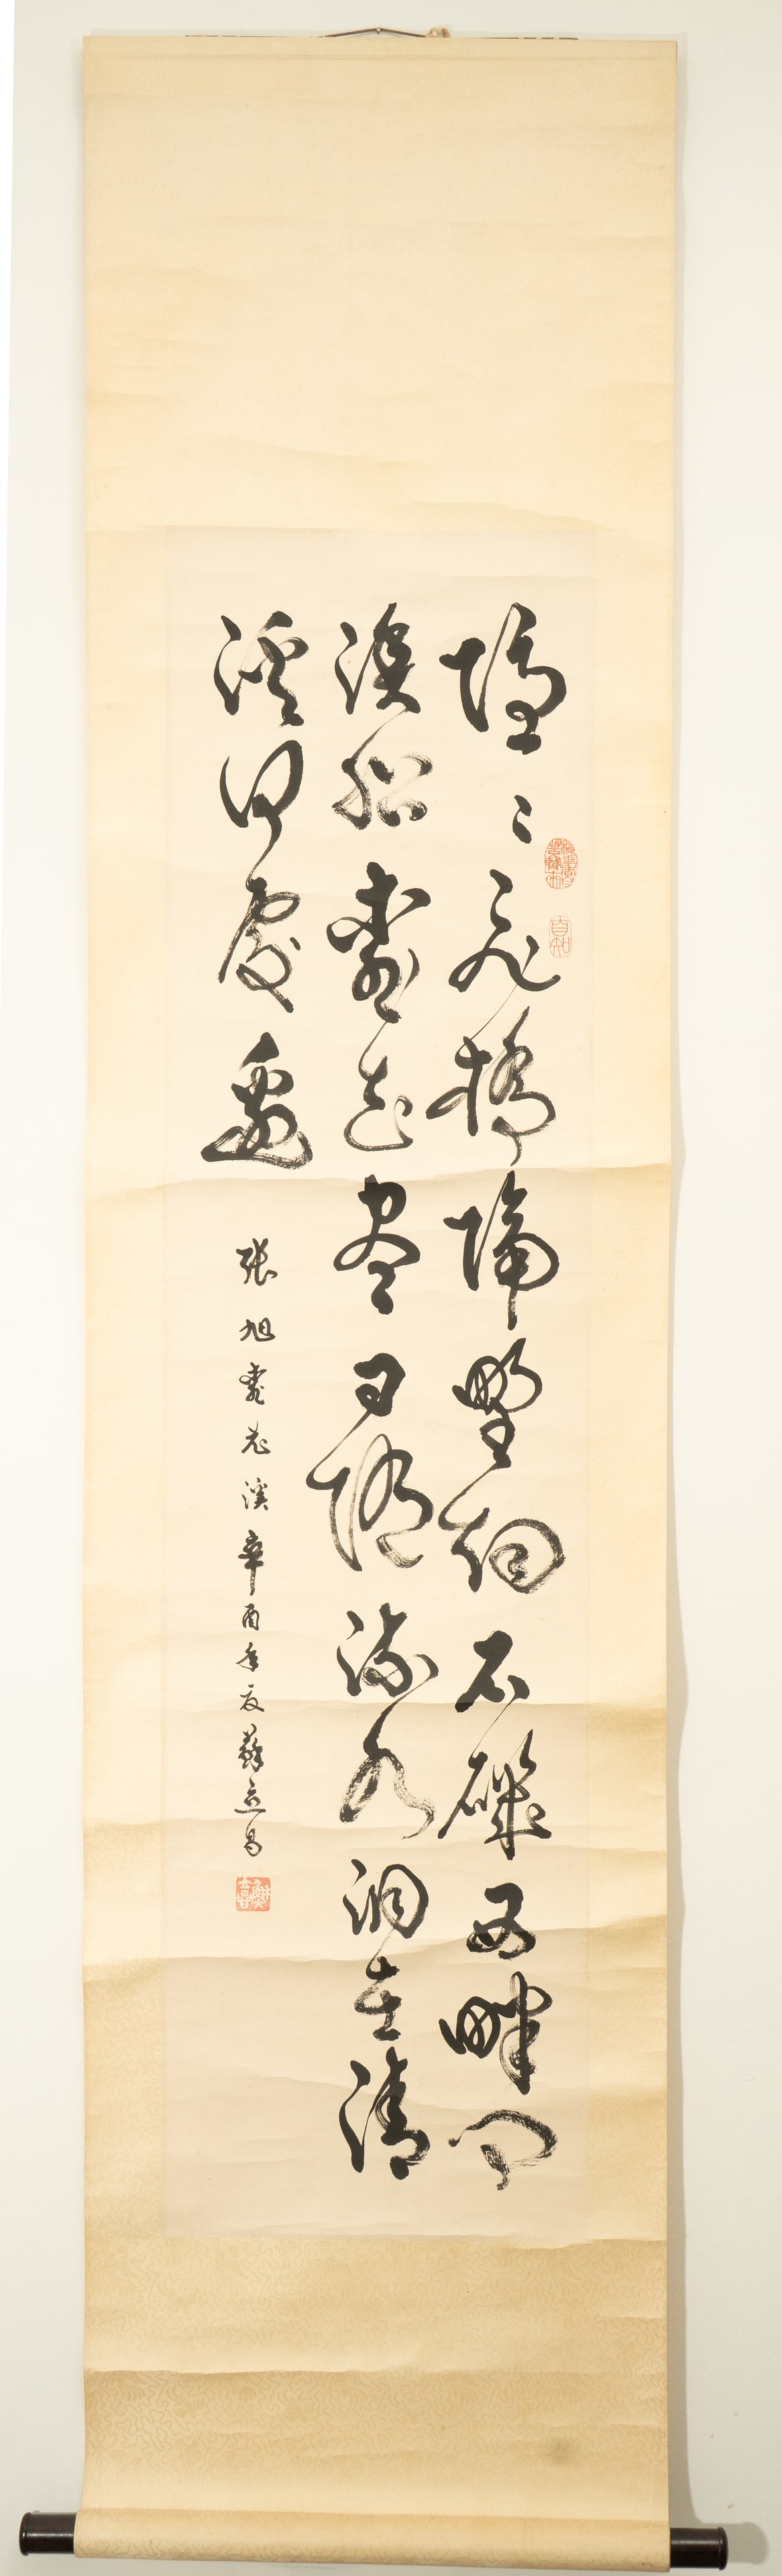 隱〻飛橋隔野烟石磯西畔問
漁船桃花盡日隨流水洞在清
溪何處邊
張旭桃花溪辛酉年夏蘇昌